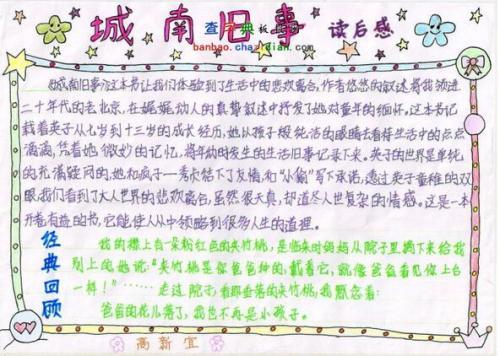 城南旧事 读后感
查字典板报网
banbao.chazidian.com
《城南旧事》这本书让我们体验到了生活中的悲欢离合,作者悠悠的叙述将我领进
二十年代的老北京,在娓娓动人的真挚叙述中抒发了她对童年的缅怀。这本书记
载着英子从七岁到十三岁的成长经历,她从孩子般纯洁的眼睛去看待生活中的点点
滴滴,凭着她微妙的记忆,将年幼时发生的生活旧事记录下来。英子的世界是单纯
的充满疑问的,她和疯子一秀贞结下了友情和“小偷”写下承诺,透过英子童稚的双
眼,我们看到了大人世界的悲欢离合,虽然很天真,却道尽人世复杂的情感。这是一本
开卷有益的书,它能使人从中领略到很多人生的道理。
经典回顾
我的襟上有一朵粉红色的夹竹桃,是临来时妈妈从院子里摘下来给我
别上的,她说:“夹竹桃是你爸爸种的,戴着它,就像爸爸看见你上台
一样!”……走过院子,看那垂落的夹竹桃,我默念着:
爸爸的花儿落了,我也不再是小孩子。
高新宜